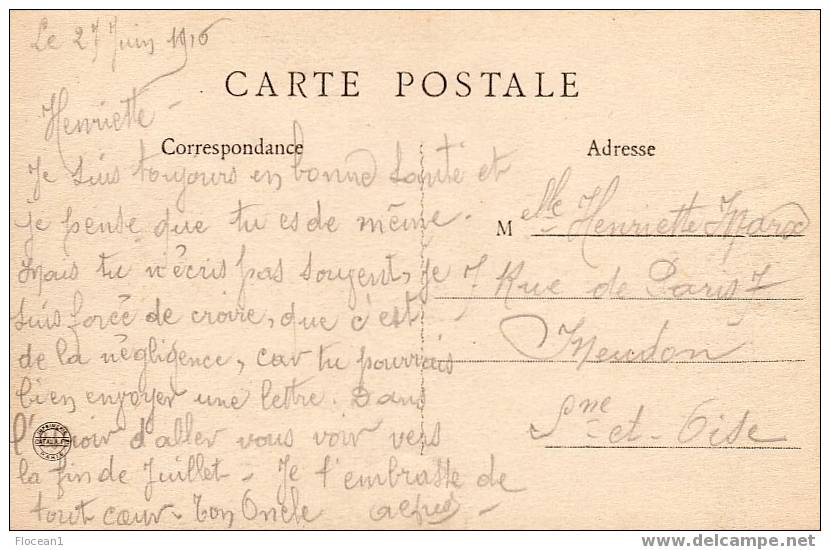 Le 27 Juin 1916
CARTE POSTALE
Henriette -
Correspondance
Adresse
Je suis toujours en bonne santé et
je pense que tu es de même.
Mais tu n'écris pas souvent, je
suis forcée de croire, que c'est
de la négligence, car tu pourrais
bien envoyer une lettre. Dans
l'espoir d'aller vous voir vers
la fin de Juillet - Je t'embrasse de
tout cœur - Ton Oncle
Melle Henriette Marx
7. Rue de Paris 7
Meudon
Sne-et-Oise
Flocean1
delcampe.net